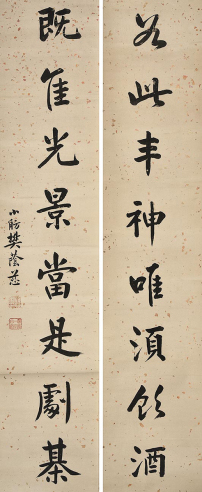 若此丰神唯須飲酒
既佳光景當是劇棊
小舫樊蔭慈